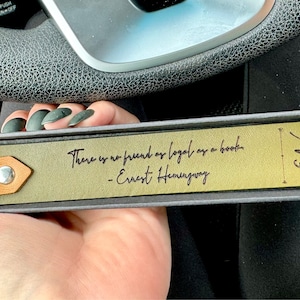 There is no friend as loyal as a book
- Ernest Hemingway